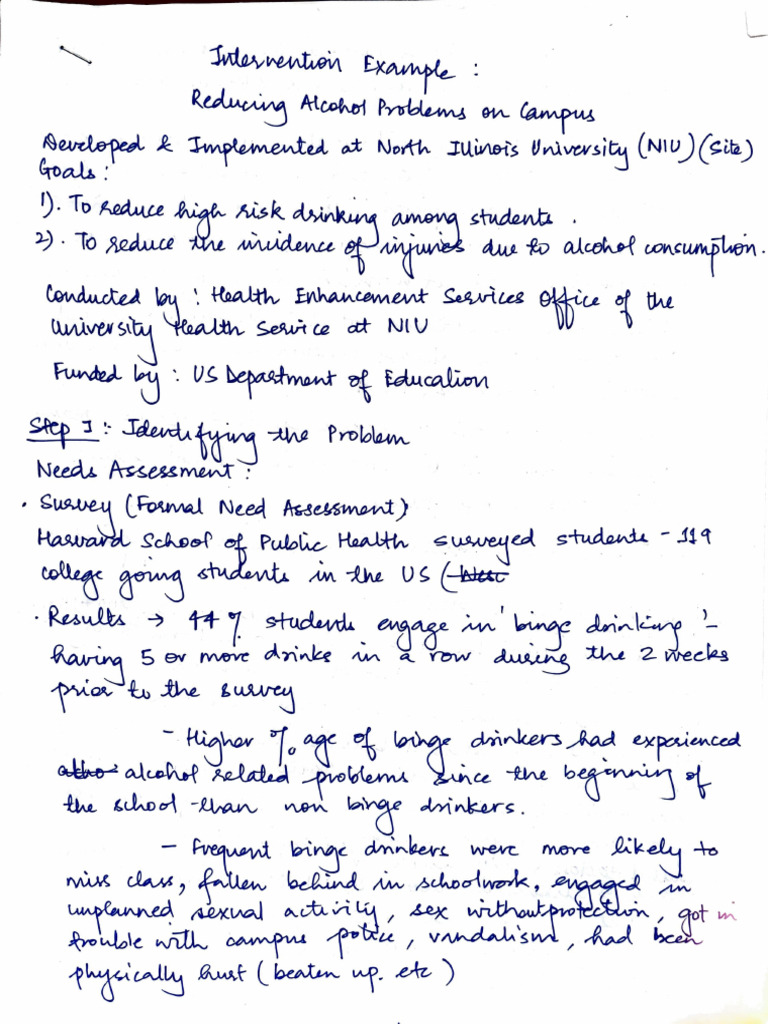 Intervention Example :
Reducing Alcohol Problems on Campus
Developed & Implemented at North Illinois University (NIU) (Site)
Goals :
1). To reduce high risk drinking among students .
2). To reduce the incidence of injuries due to alcohol consumption.
Conducted by : Health Enhancement Services Office of the
University Health Service at NIU
Funded by : US Department of Education
Step 1 :- Identifying the Problem
Needs Assessment :
. Survey (Formal Need Assessment)
Harvard School of Public Health surveyed students - 119
college going students in the US (
. Results → 44 % students engage in 'binge drinking '-
having 5 or more drinks in a row during the 2 weeks
prior to the survey
- Higher % age of binge drinkers had experienced
alcohol related problems since the beginning of
the school than non binge drinkers.
- Frequent binge drinkers were more likely to
miss class, fallen behind in schoolwork, engaged in
unplanned sexual activity, sex without protection, got in
trouble with campus police, vandalism, had been
physically hurt (beaten up. etc)